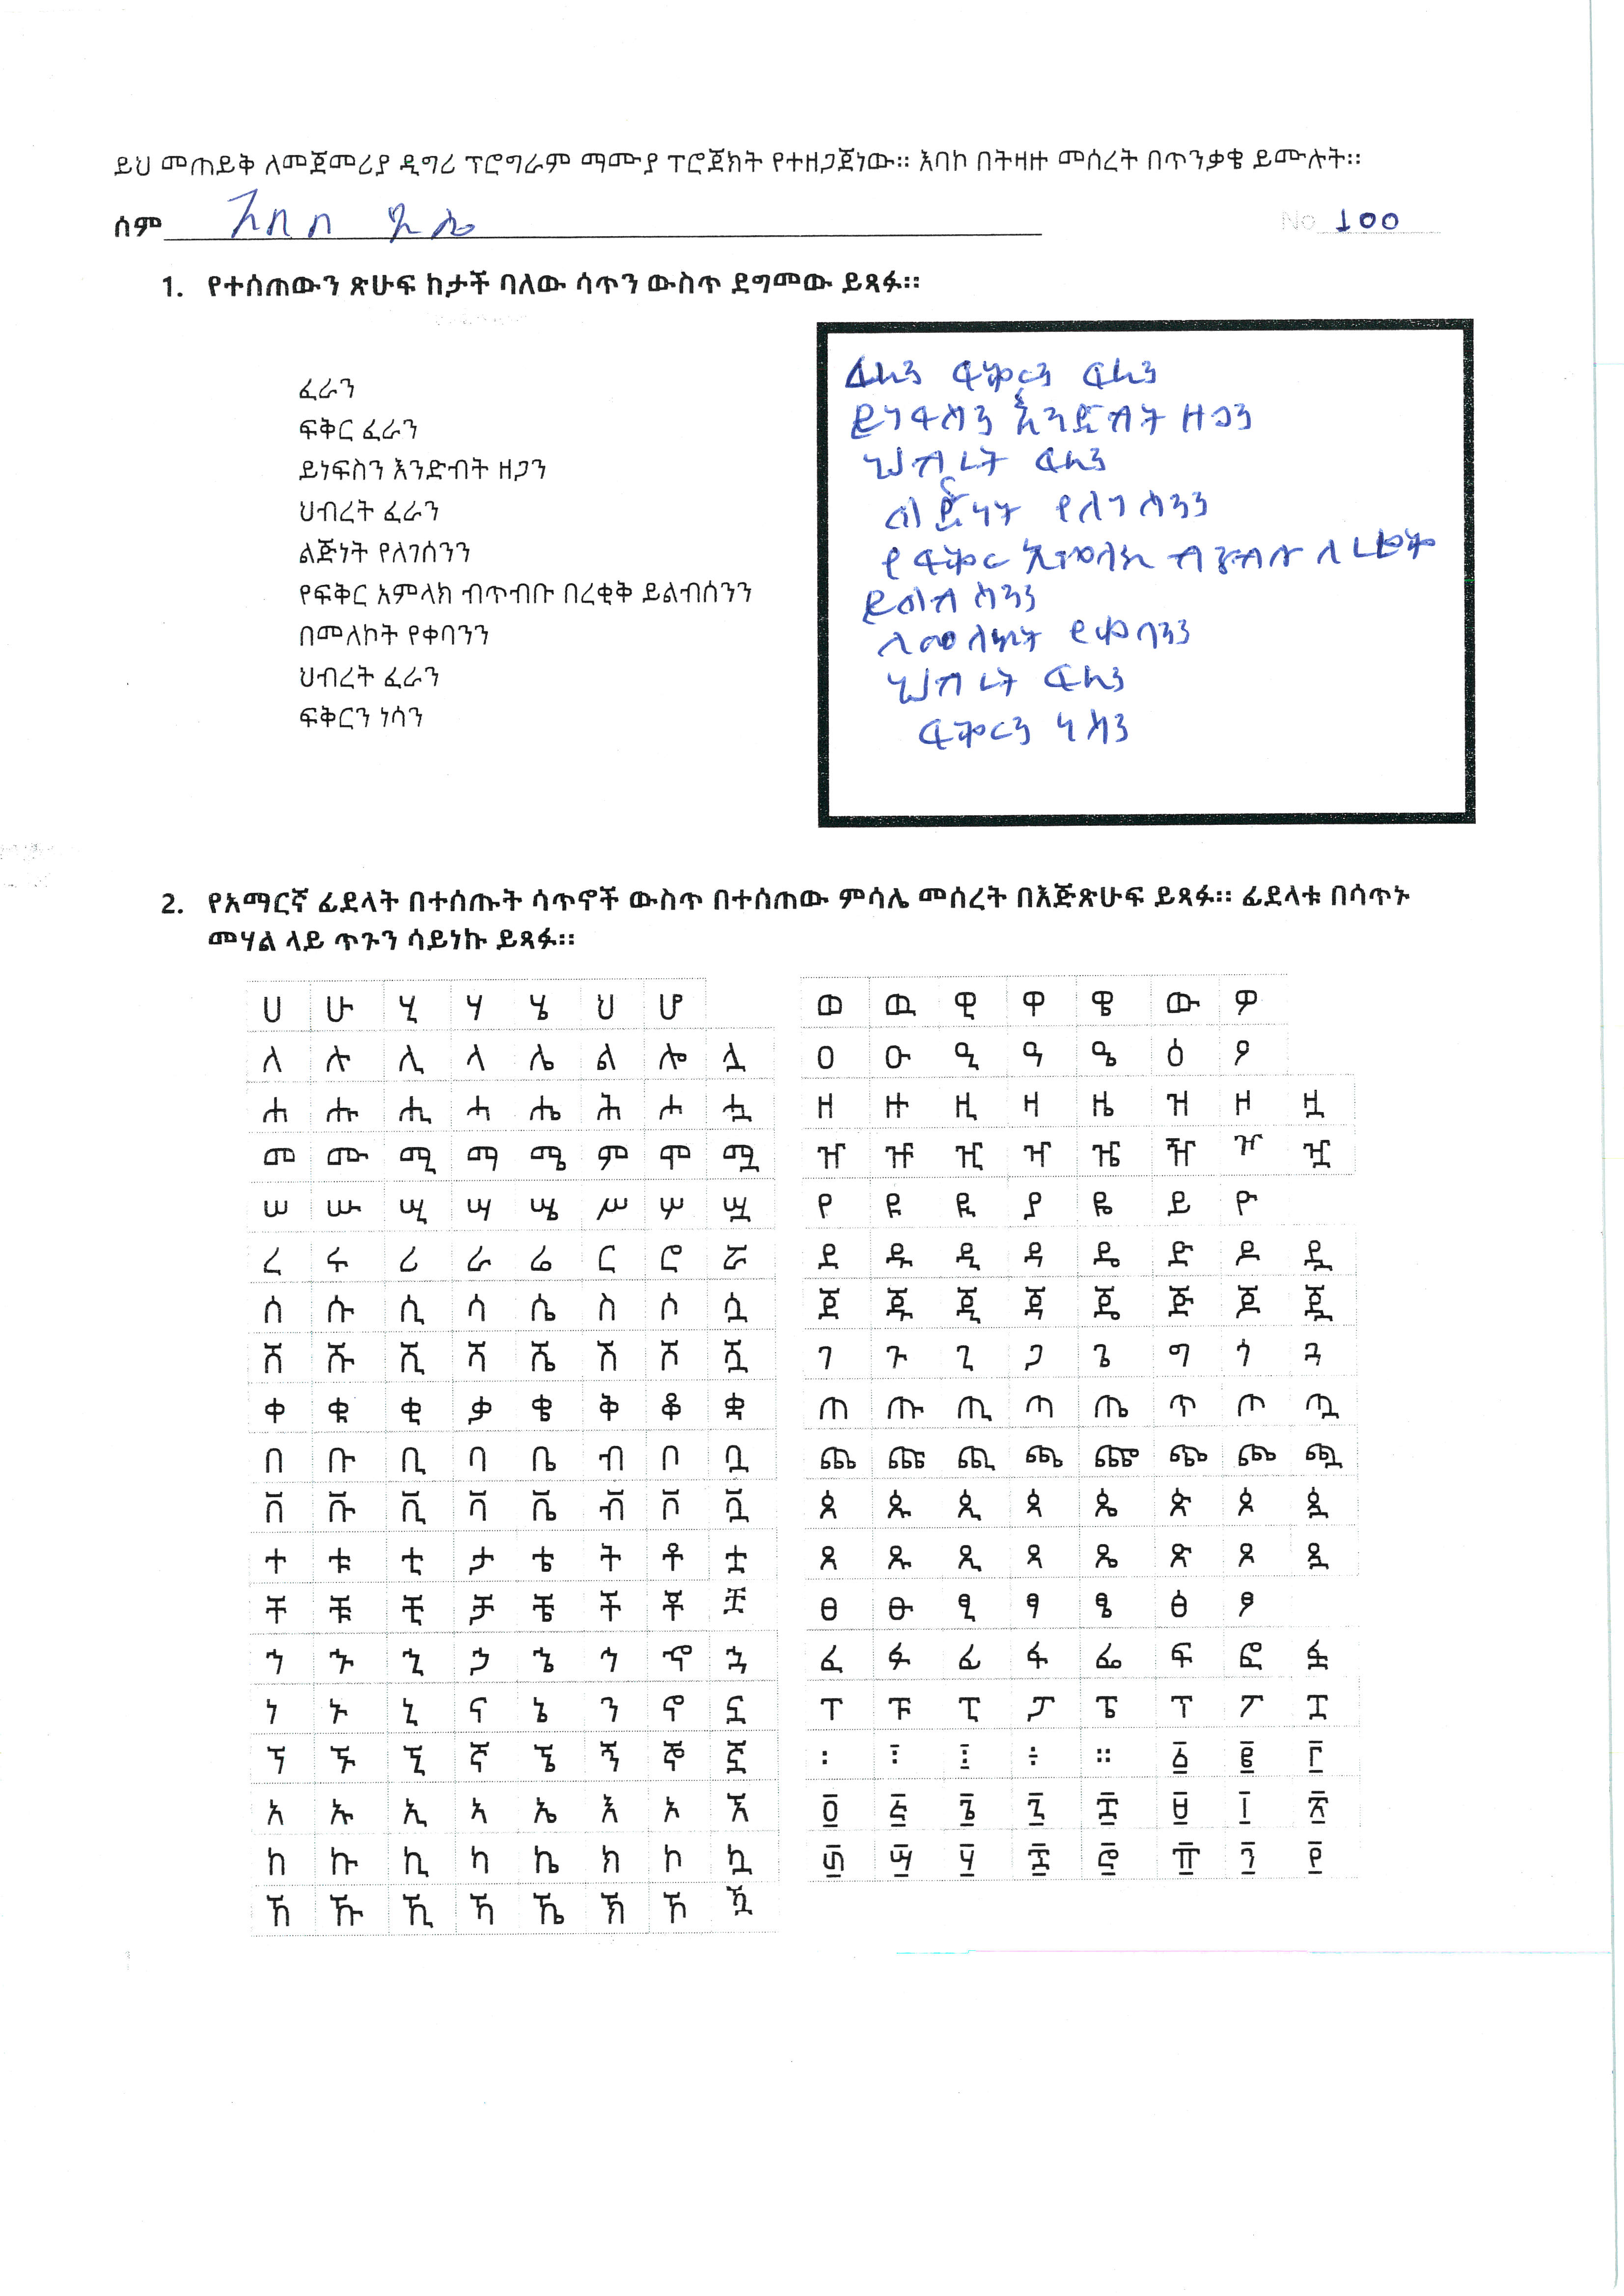 ይህ መጠይቅ ለመጀመሪያ ዲግሪ ፕሮግራም ማሟያ ፕሮጀክት የተዘጋጀነው። እባኮ በትዛዙ መሰረት በጥንቃቄ ይሙሉት።
ስም No 100
1. የተሰጠውን ጽሁፍ ከታች ባለው ሳጥን ውስጥ ደግመው ይጻፉ።
ፈራን
ፍቅር ፈራን
ይነፍስን እንድብት ዘጋን
ህብረት ፈራን
ልጅነት የለገሰንን
የፍቅር አምላክ ብጥብቡ በረቂቅ ይልብሰንን
በመለኮት የቀባንን
ህብረት ፈራን
ፍቅርን ነሳን
ፈራን ፍቅርን ፈራን
ይነፍስን እንድብት ዘጋን
ህብረት ፈራን
ልጅነት የለገሰንን
የፍቅር አምላክ
ይልብሰንን
በመለኮት የቀባንን
ህብረት ፈራን
ፍቅርን ነሳን
2. የአማርኛ ፊደላት በተሰጡት ሳጥኖች ውስጥ በተሰጠው ምሳሌ መሰረት በእጅጽሁፍ ይጻፉ። ፊደላቱ በሳጥኑ
መሃል ላይ ጥጉን ሳይነኩ ይጻፉ።
ሀ ሁ ሂ ሃ ሄ ህ ሆ
ለ ሉ ሊ ላ ሌ ል ሎ ሏ
ሐ ሑ ሒ ሓ ሔ ሕ ሖ ሗ
መ ሙ ሚ ማ ሜ ም ሞ ሟ
ሠ ሡ ሢ ሣ ሤ ሥ ሦ ሧ
ረ ሩ ሪ ራ ሬ ር ሮ ሯ
ሰ ሱ ሲ ሳ ሴ ስ ሶ ሷ
ሸ ሹ ሺ ሻ ሼ ሽ ሾ ሿ
ቀ ቁ ቂ ቃ ቄ ቅ ቆ ቋ
በ ቡ ቢ ባ ቤ ብ ቦ ቧ
ቨ ቩ ቪ ቫ ቬ ቭ ቮ ቯ
ተ ቱ ቲ ታ ቴ ት ቶ ቷ
ቸ ቹ ቺ ቻ ቼ ች ቾ ቿ
ኀ ኁ ኂ ኃ ኄ ኅ ኆ ኋ
ነ ኑ ኒ ና ኔ ን ኖ ኗ
ኘ ኙ ኚ ኛ ኜ ኝ ኞ ኟ
አ ኡ ኢ ኣ ኤ እ ኦ ኧ
ከ ኩ ኪ ካ ኬ ክ ኮ ኳ
ኸ ኹ ኺ ኻ ኼ ኽ ኾ ዃ
ወ ዉ ዊ ዋ ዌ ው ዎ
ዐ ዑ ዒ ዓ ዔ ዕ ዖ
ዘ ዙ ዚ ዛ ዜ ዝ ዞ ዟ
ዠ ዡ ዢ ዣ ዤ ዥ ዦ ዧ
የ ዩ ዪ ያ ዬ ይ ዮ
ደ ዱ ዲ ዳ ዴ ድ ዶ ዷ
ጀ ጁ ጂ ጃ ጄ ጅ ጆ ጇ
ገ ጉ ጊ ጋ ጌ ግ ጎ ጓ
ጠ ጡ ጢ ጣ ጤ ጥ ጦ ጧ
ጨ ጩ ጪ ጫ ጬ ጭ ጮ ጯ
ጰ ጱ ጲ ጳ ጴ ጵ ጶ ጷ
ጸ ጹ ጺ ጻ ጼ ጽ ጾ ጿ
ፀ ፁ ፂ ፃ ፄ ፅ ፆ
ፈ ፉ ፊ ፋ ፌ ፍ ፎ ፏ
ፐ ፑ ፒ ፓ ፔ ፕ ፖ ፗ
፡ ፧ ፧ ፥ ። ፩ ፪ ፫
፬ ፭ ፮ ፯ ፰ ፱ ፲ ፳
፴ ፵ ፶ ፷ ፸ ፹ ፺ ፻